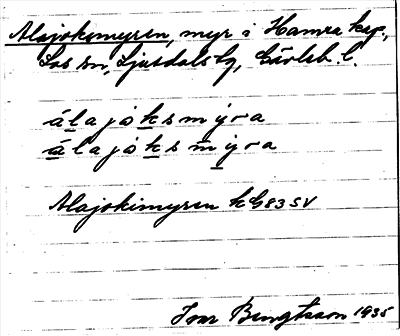 Alajokimyren, myr i Hamra kap.,
Los sn, Ljusdals tg, Gävleb. l.
álajo̊ksmỳra
álajo̊ksmỳra
Alajokimyren kG83SV
Ivar Bengtsson 1935